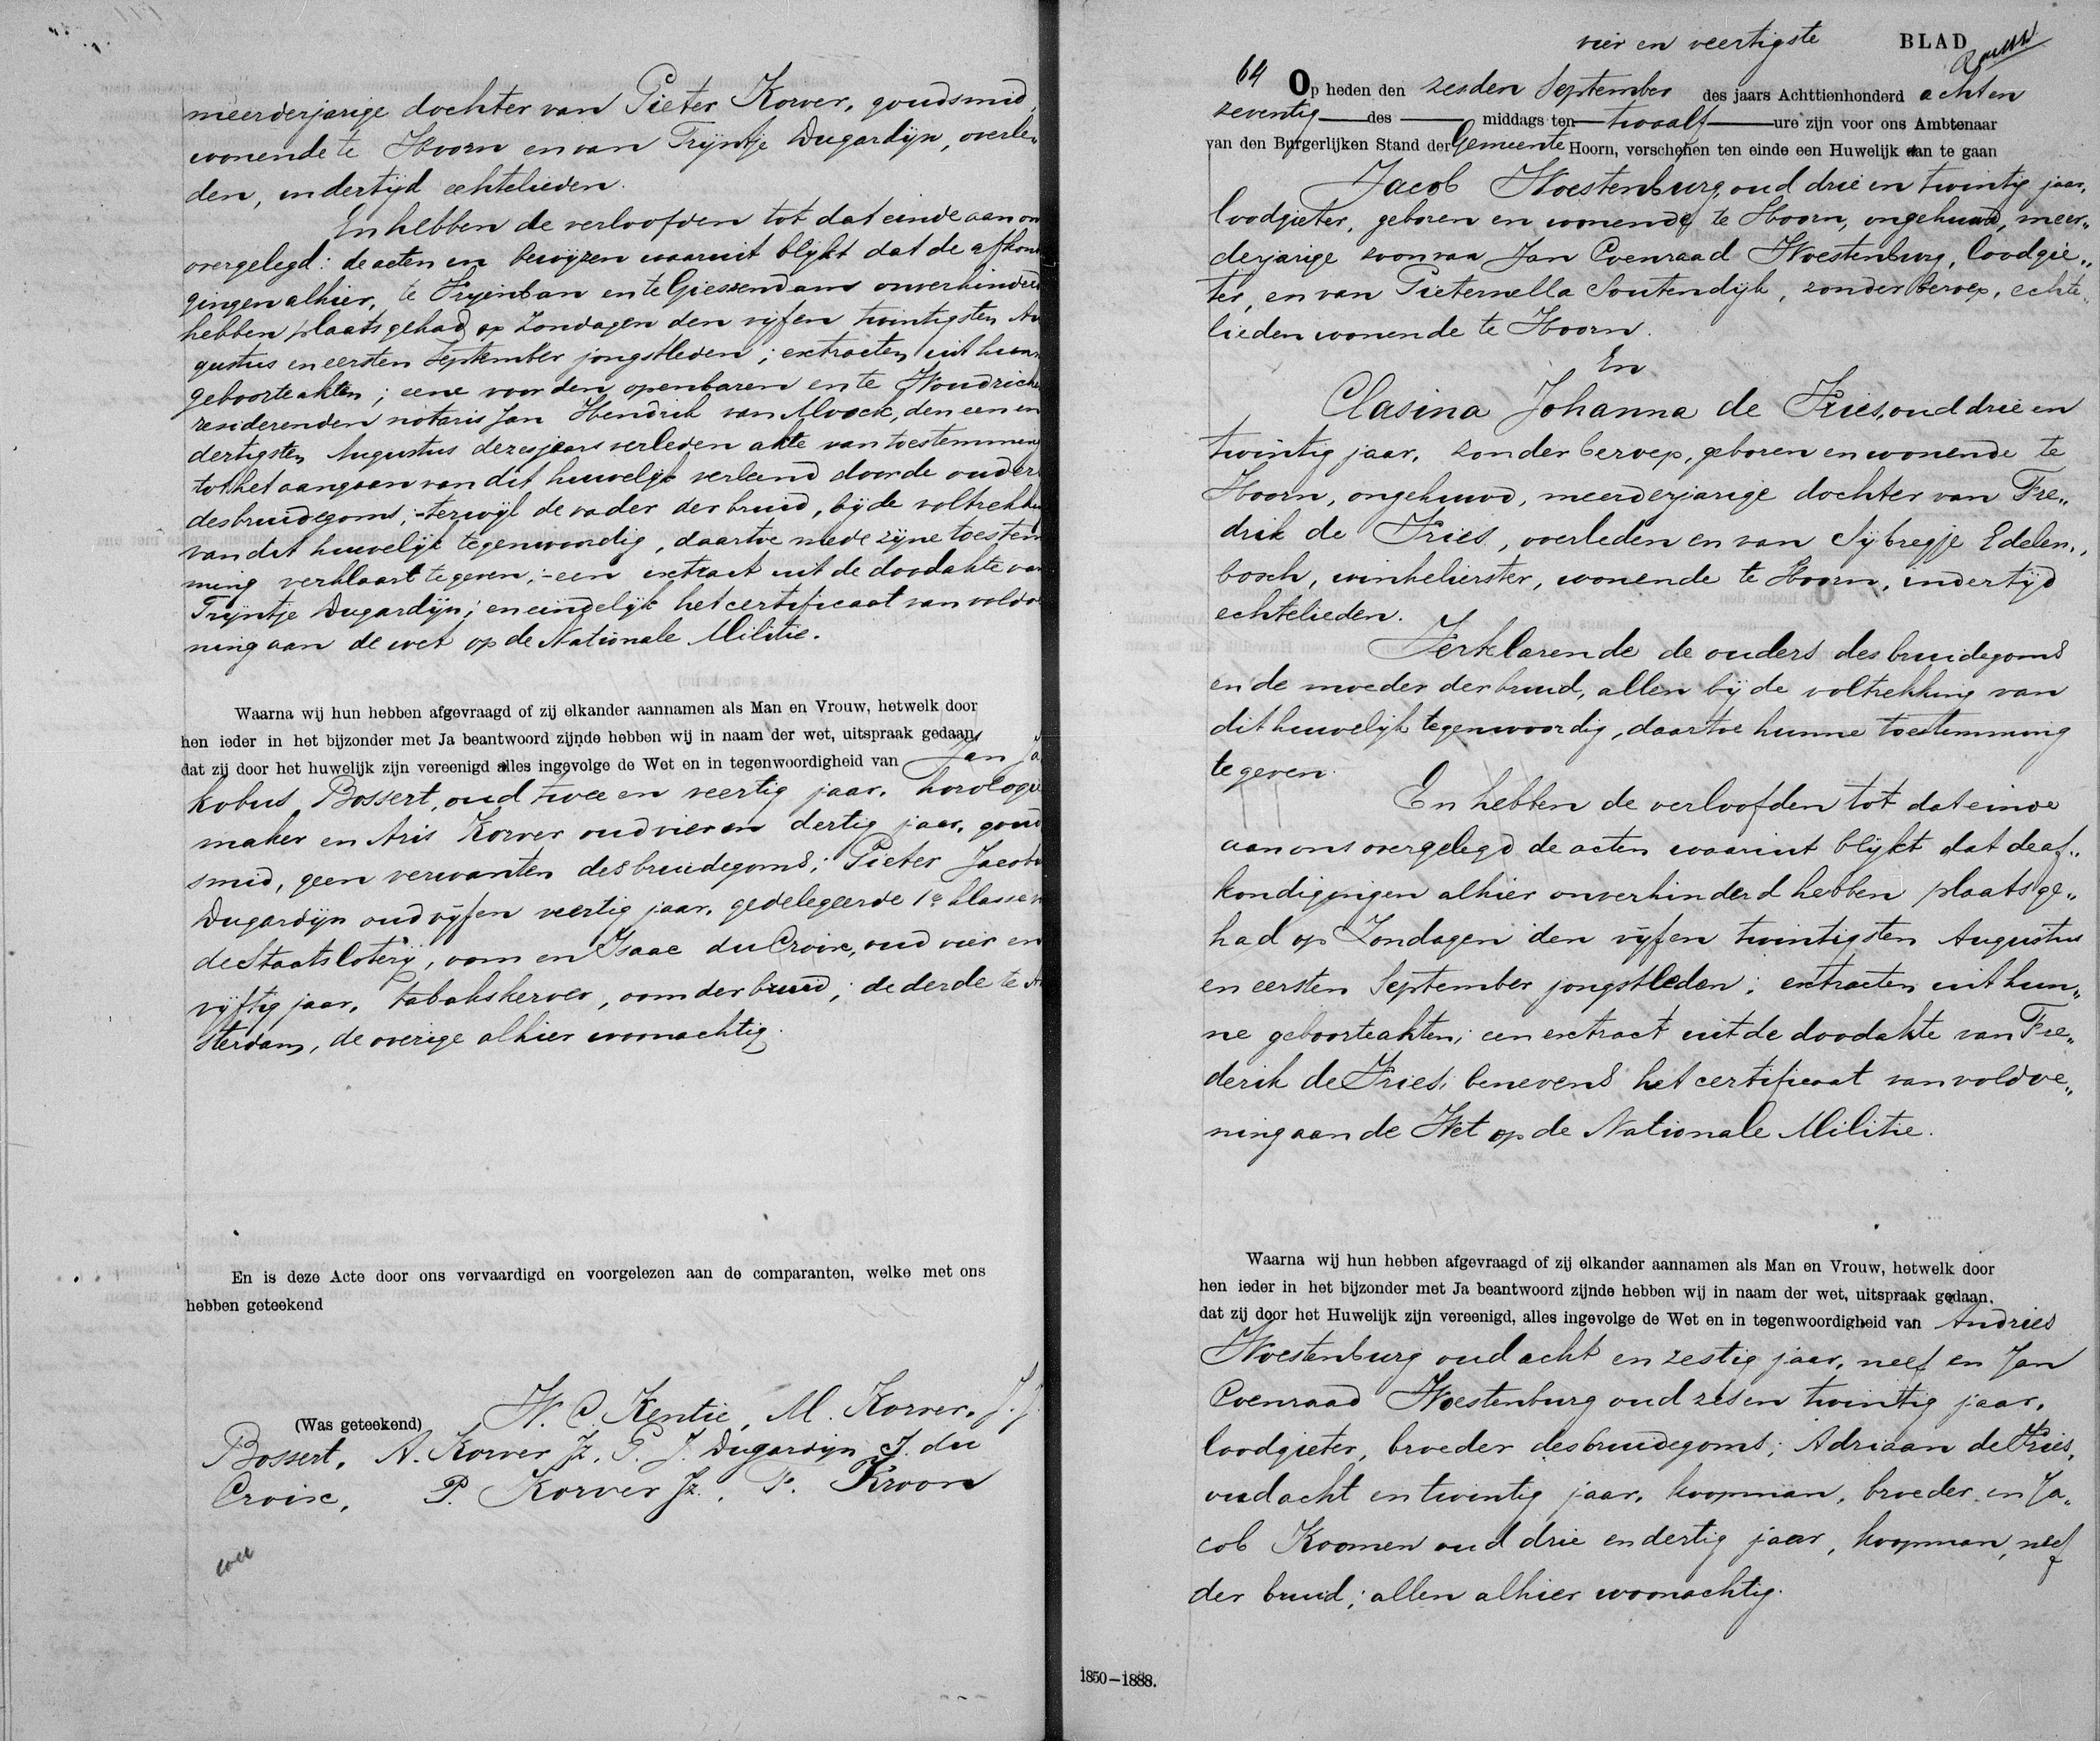 meerderjarige dochter van Pieter Korver, goudsmid,
wonende te Hoorn en van Trijntje Dugardijn, overle„
den, indertijd echtelieden.
En hebben de verloofden tot dat einde aan on
overgelegd: de acten en bewijzen waaruit blijkt dat de afkon
gingen alhier, te Vryenban en te Giessendam onverhinderd
hebben plaats gehad op Zondagen den vijfen twintigsten Au
gustus en eersten September jongstleden; extracten uit hun
geboorteakten; eene voor den openbaren en te Woudrich
resideerenden notaris Jan Hendrik van Moock, den een en
dertigsten Augustus dezes jaars verleden akte van toestemmen
tot het aangaan van dit huwelijk verleend door de ouder
des bruidegoms; terwijl de vader der bruid, bij de voltrekki
van dit huwelijk tegenwoordig, daartoe mede zijne toestem
ming verklaart te geven; een extract uit de doodakte van
Trijntje Dugardijn; en eindelijk het certificaat van voldoe
ning aan de wet op de Nationale Militie.
Waarna wij hun hebben afgevraagd of zij elkander aannamen als Man en Vrouw, hetwelk door
hen ieder in het bijzonder met Ja beantwoord zijnde hebben wij in naam der wet, uitspraak gedaan,
dat zij door het huwelijk zijn vereenigd alles ingevolge de Wet en in tegenwoordigheid van Jan Ja
kobus Bossert, oud twee en veertig jaar, horologie
maker en Aris Korver oud vier en dertig jaar, goud
smid, geen verwanten des bruidegoms; Pieter Jacobu
Dugardijn oud vijfen veertig jaar, gedelegeerde 1e klasse v
de Staatsloterij, oom en Isaac du Croix, oud vier en
vijftig jaar, tabakskerver, oom der bruid; de derde te Am
sterdam, de overige alhier woonachtig.
En is deze Acte door ons vervaardigd en voorgelezen aan de comparanten, welke met ons
hebben geteekend
(Was geteekend) W. C. Kentie, M. Korver, J. J.
Bossert, A. Korver Jz, P. J. Dugardijn J. du
Croix, P. Korver Jz., P. Kroon
vier en veertigste BLAD
64 Op heden den zesden September des jaars Achttienhonderd achten
zeventig des middags ten twaalf ure zijn voor ons Ambtenaar
van den Burgerlijken Stand der Gemeente Hoorn, verschenen ten einde een Huwelijk aan te gaan
Jacob Woestenburg, oud drie en twintig jaar,
loodgieter, geboren en wonende te Hoorn, ongehuwd, meer„
derjarige zoon van Jan Coenraad Woestenburg, loodgie„
ter, en van Pieternella Soutendijk, zonder beroep, echte„
lieden wonende te Hoorn.
En
Clasina Johanna de Vries, oud drie en
twintig jaar, zonder beroep, geboren en wonende te
Hoorn, ongehuwd, meerderjarige dochter van Fre„
drik de Vries, overleden en van Sijbregje Edelen„
bosch, winkelierster, wonende te Hoorn, indertijd
echtelieden.
Verklarende de ouders des bruidegoms
en de moeder der bruid, allen bij de voltrekking van
dit huwelijk tegenwoordig, daartoe hunne toestemming
te geven.
En hebben de verloofden tot dat einde
aan ons overgelegd de acten waaruit blijkt dat de af„
kondigingen alhier onverhinderd hebben plaats ge„
had op Zondagen den vijfen twintigsten Augustus
en eersten September jongstleden; extracten uit hun„
ne geboorteakten; een extract uit de doodakte van Fre„
derik de Vries; benevens het certificaat van voldoe„
ning aan de Wet op de Nationale Militie.
Waarna wij hun hebben afgevraagd of zij elkander aannamen als Man en Vrouw, hetwelk door
hen ieder in het bijzonder met Ja beantwoord zijnde hebben wij in naam der wet, uitspraak gedaan.
dat zij door het Huwelijk zijn vereenigd, alles ingevolge de Wet en in tegenwoordigheid van Andries
Woestenburg oud acht en zestig jaar, neef en Jan
Coenraad Woestenburg oud zes en twintig jaar,
loodgieter, broeder des bruidegoms; Adriaan de Vries,
oud acht en twintig jaar, koopman, broeder en Ja„
cob Koomen oud drie en dertig jaar, koopman, neef
der bruid; allen alhier woonachtig.
1850–1888.